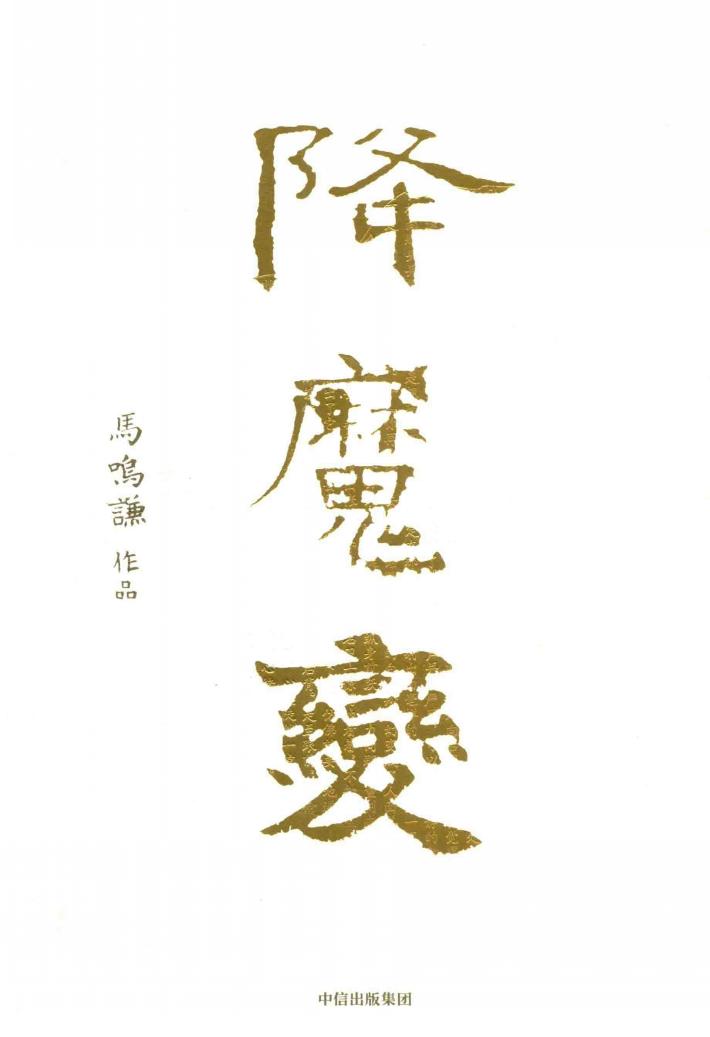 降魔變
馬鳴謙 作品
中信出版集团